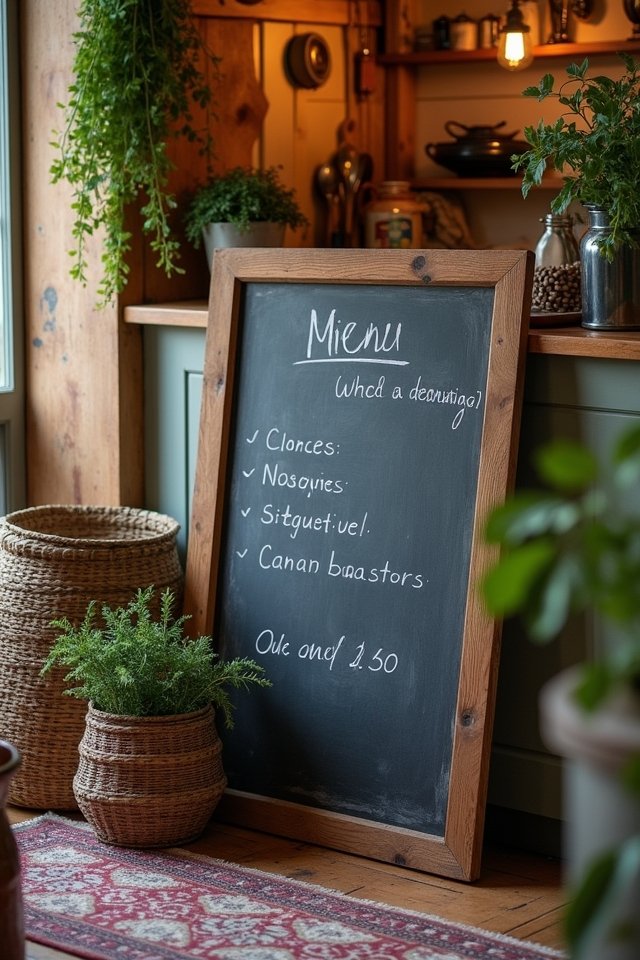 Mienu
Whcd a deanmigo?
✓ Clonces:
✓ Nosqyies
✓ Sitguet:vel.
✓ Canan baastors
Oule and 2.50